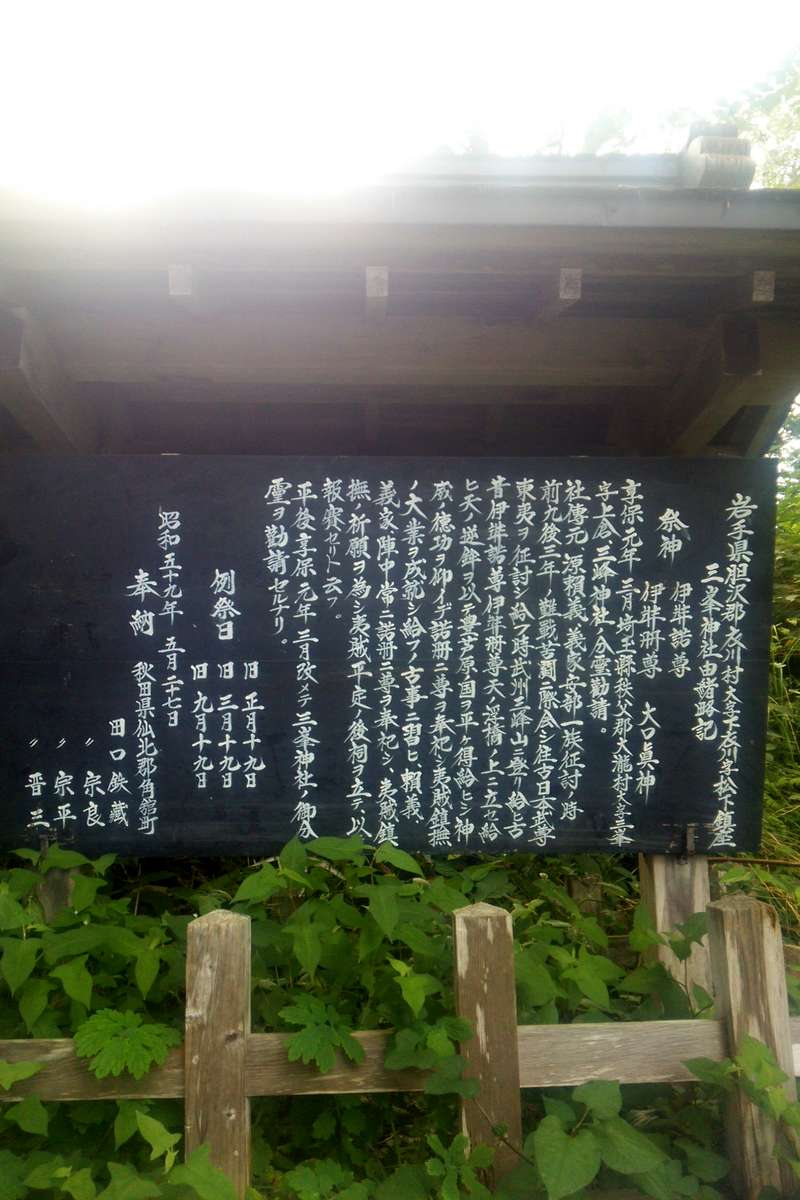 岩手県胆沢郡衣川村大字下衣川字松下鎮座
三峯神社由緒略記
祭神 伊弉諾尊
伊弉册尊 大口眞神
享保元年二月埼玉縣秩父郡大瀧村大字三峯
字上倉三峰神社ノ分霊勧請。
社傳元、源頼義、義家安部一族征討ノ時
前九後三年ノ難戦苦闘ニ際会シ往古日本武尊
東夷ヲ征討シ給フ時武州三峰山ニ登リ給ヒ古
昔伊弉諾尊伊弉册尊天ノ浮橋ノ上ニ立セ給
ヒ天ノ逆鉾ヲ以テ豊芦原ノ国ヲ平ゲ得給ヒシ神
威ノ徳功ヲ仰イデ諾册二尊ヲ奉祀シ夷賊鎮撫
ノ大業ヲ成就シ給フノ古事ニ習ヒ、頼義
義家陣中常ニ諾册二尊ヲ奉祀シ、夷賊鎮
撫ノ祈願ヲ為シ夷賊平定ノ後祠ヲ立テ以
報賽セリト云フ。
平後享保元年二月改メテ三峯神社ノ御分
霊ヲ勧請セルナリ。
例祭日 旧正月十九日
旧三月十九日
旧九月十九日
昭和五十九年 五月二十七日
奉納 秋田県仙北郡角館町
田口鉄藏
〃宗良
〃宗平
〃晋三